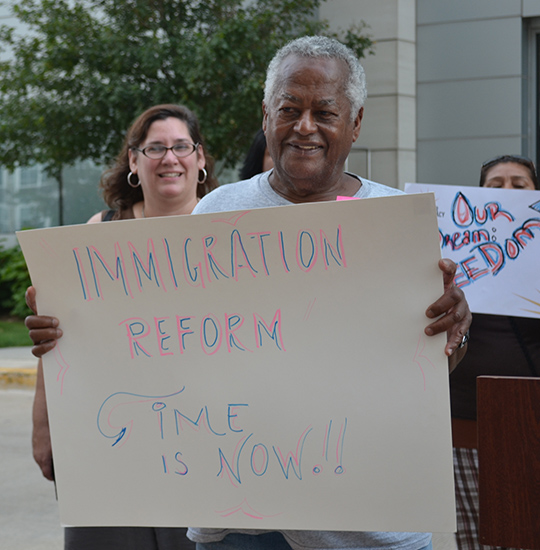 IMMIGRATION
REFORM
TIME
IS NOW.!!
OUR
Dream:
FREEDOM